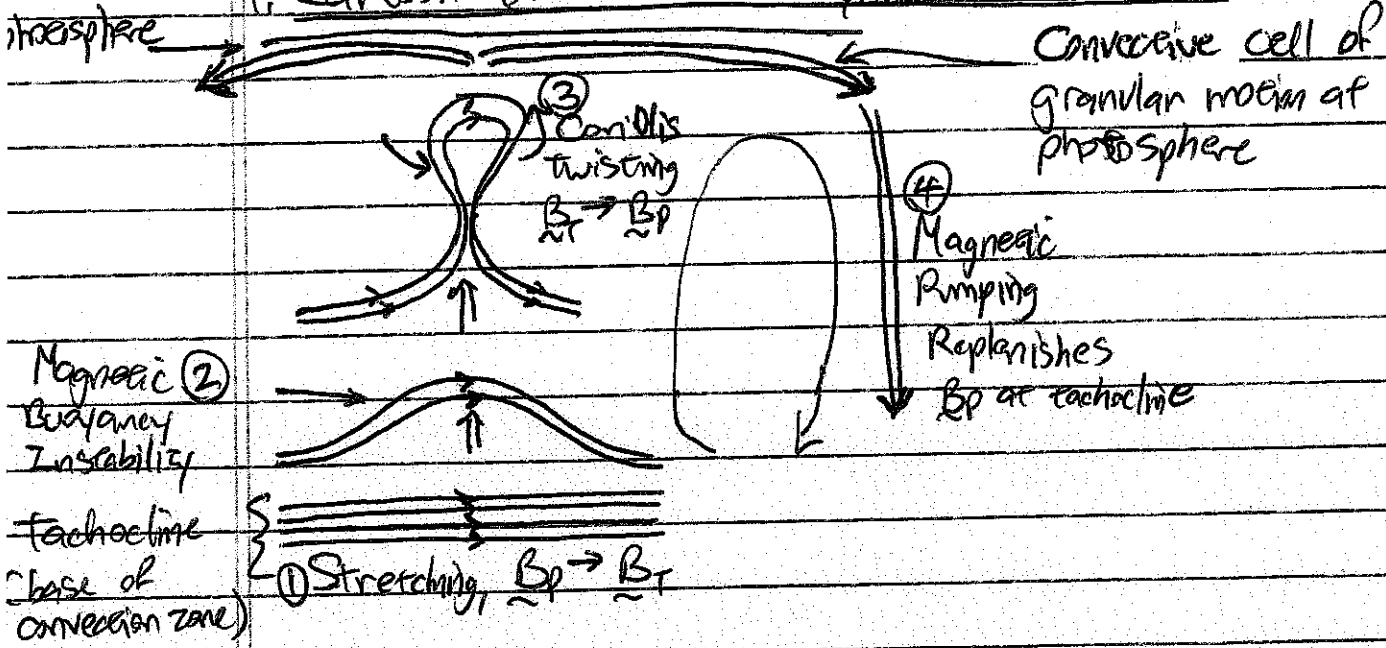 photosphere
Convective cell of
granular motion at
photosphere
③
Coriolis
twisting
B_T → B_P
④
Magnetic
Pumping
Replanishes
B_P at tachocline
Magnetic ②
Buoyancy
Instability
tachocline
(base of
convection zone)
① Stretching, B_P → B_T